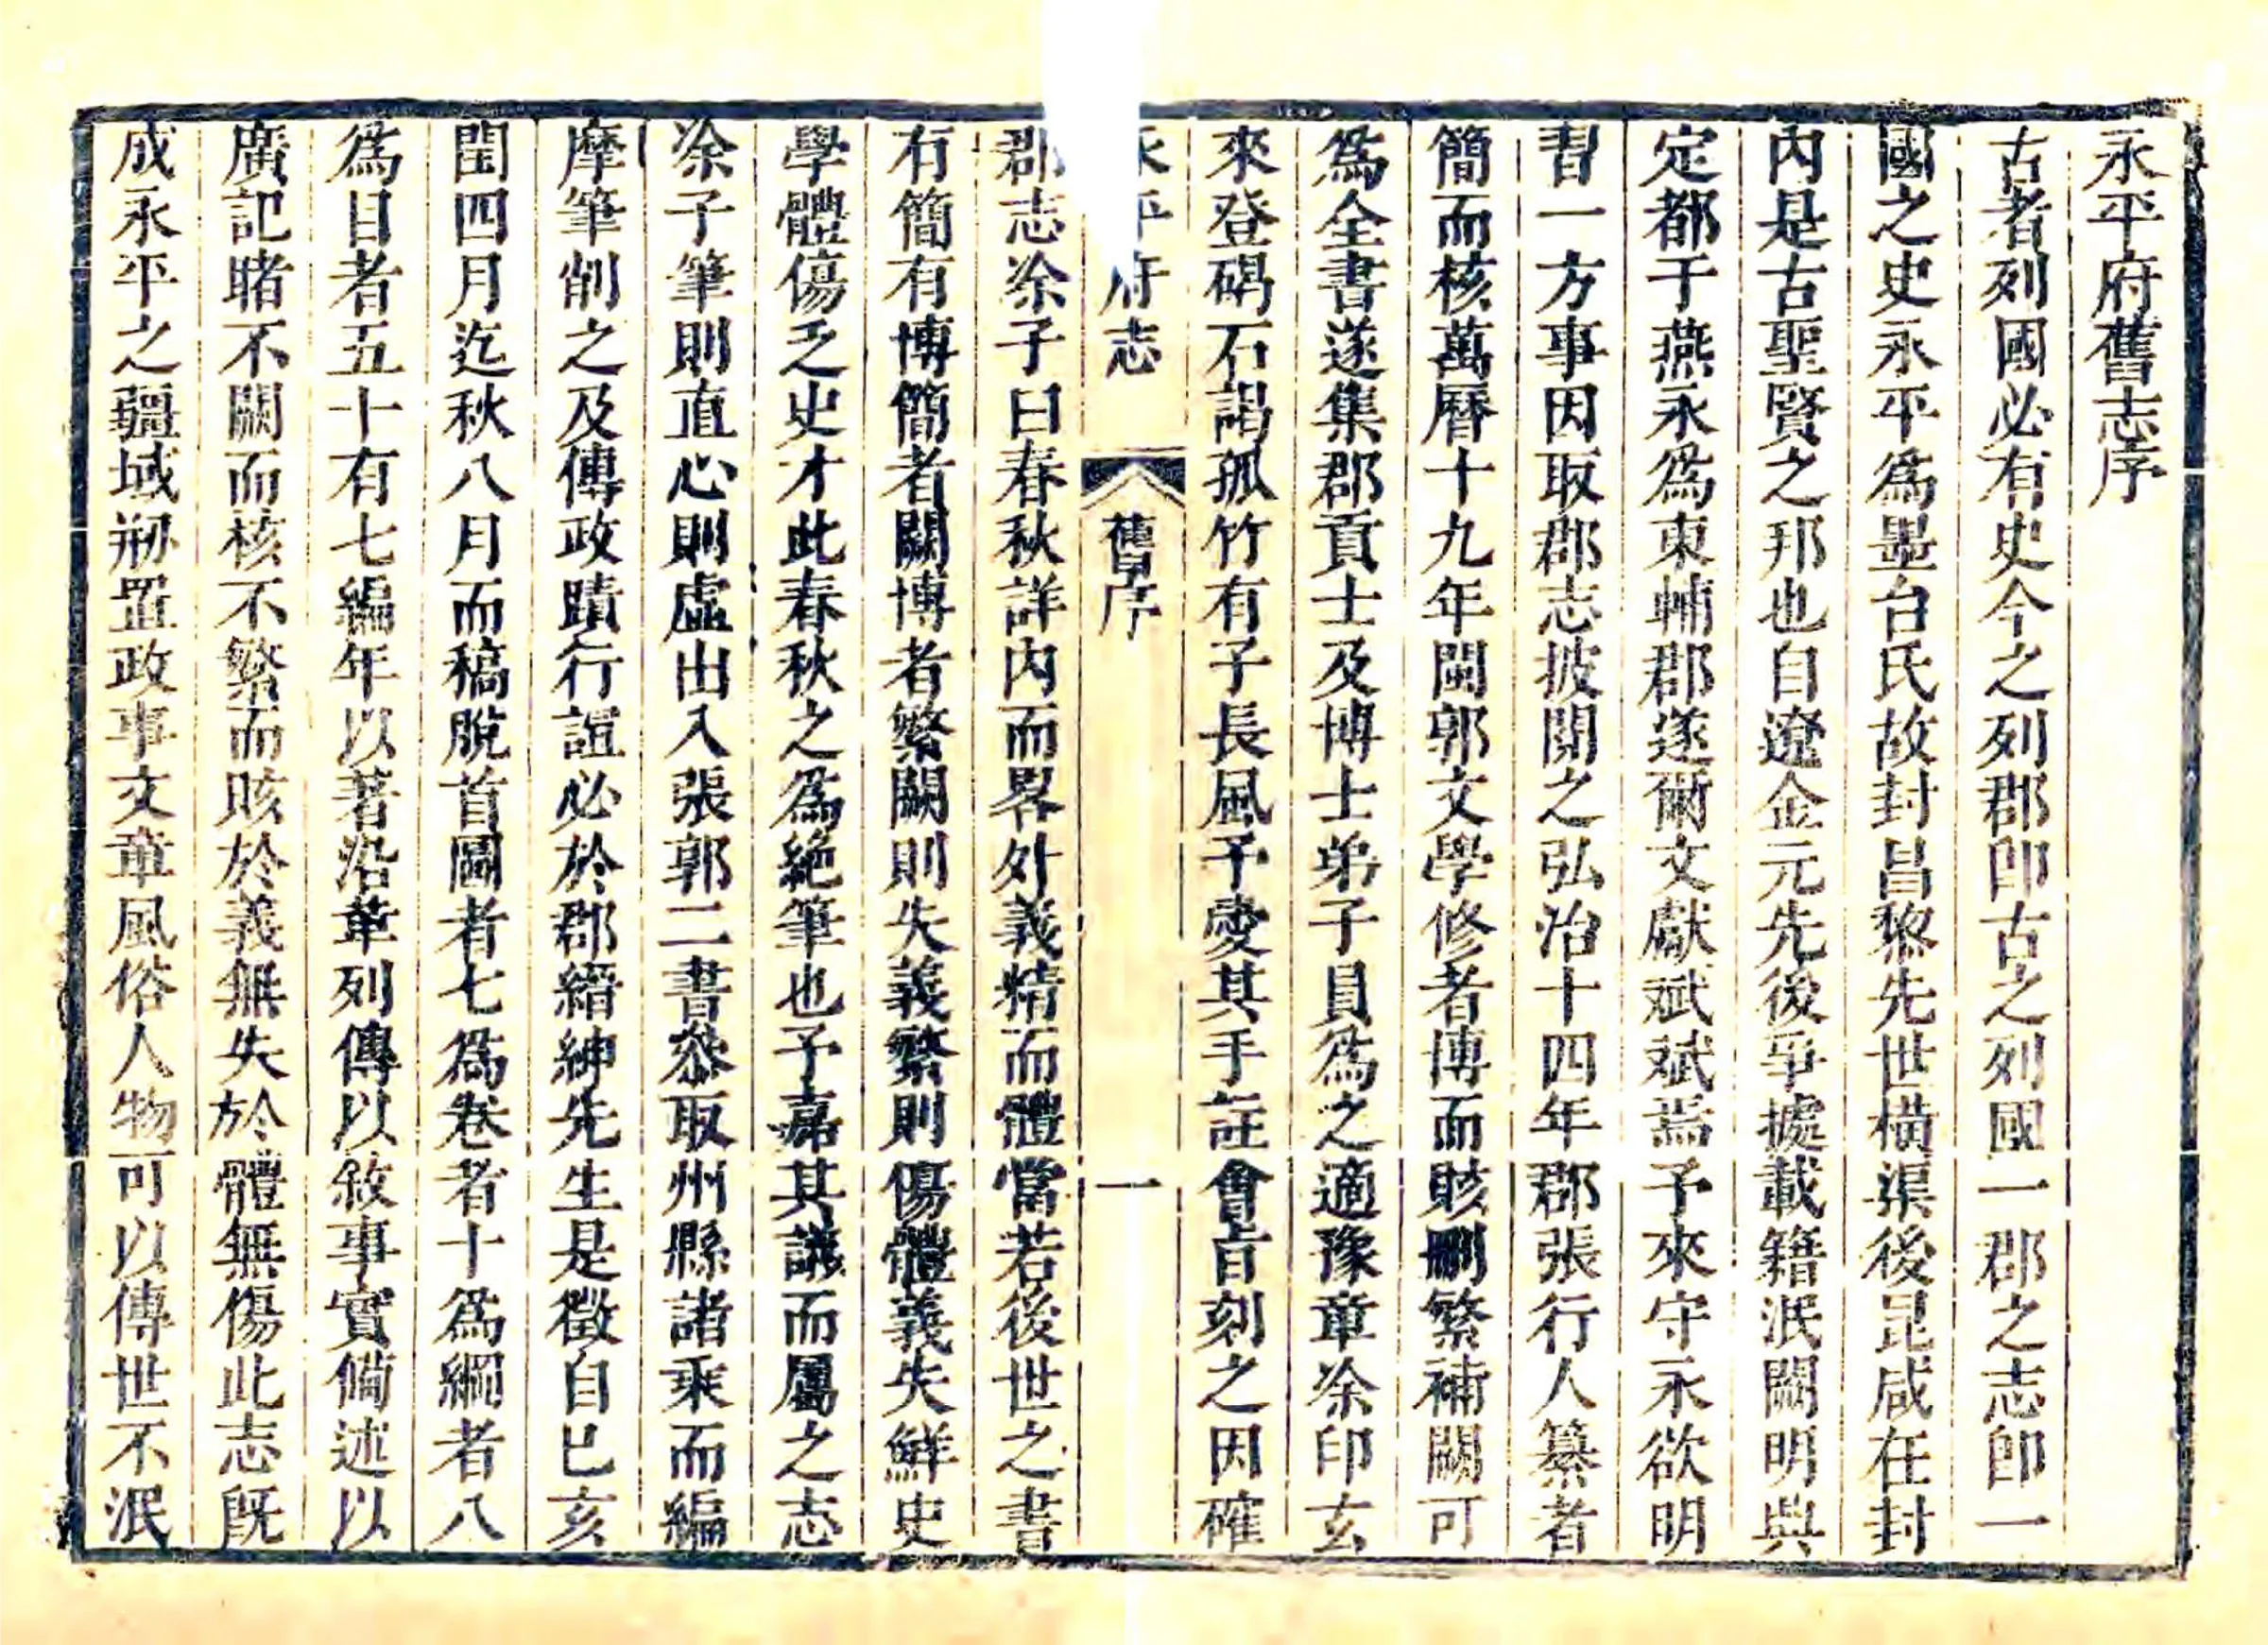 永平府舊志序
古者列國必有史今之列郡卽古之列國一郡之志卽一
國之史永平爲墨台氏故封昌黎先世橫渠後昆咸在封
內是古聖賢之邦也自遼金元先後爭據載籍泯闕明興
定都于燕永爲東輔郡遂爾文獻斌斌焉予來守永欲明
習一方事因取郡志披閱之弘治十四年郡張行人纂者
簡而核萬曆十九年閩郭文學修者博而賅刪繁補闕可
爲全書遂集郡貢士及博士弟子員爲之適豫章涂印玄
來登碣石謁孤竹有子長風予愛其手註會旨刻之因確
永平府志 舊序 一
郡志涂子曰春秋詳內而畧外義精而體當若後世之書
有簡有博簡者闕博者繁闕則失義繁則傷體義失鮮史
學體傷乏史才此春秋之爲絕筆也予嘉其議而屬之志
涂子筆則直心則虛出入張郭二書叅取州縣諸乘而編
摩筆削之及傳政蹟行誼必於郡縉紳先生是徵自己亥
閏四月迄秋八月而稿脫首圖者七爲卷者十爲綱者八
爲目者五十有七編年以著沿革列傳以敘事實僃述以
廣記賭不闕而核不繁而賅於義無失於體無傷此志旣
成永平之疆域剏置政事文章風俗人物可以傳世不泯